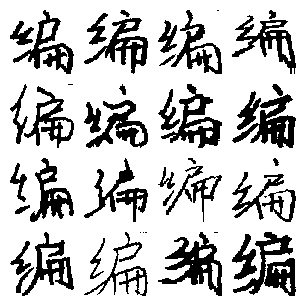 编编编编
编编编编
编编编编
编编编编